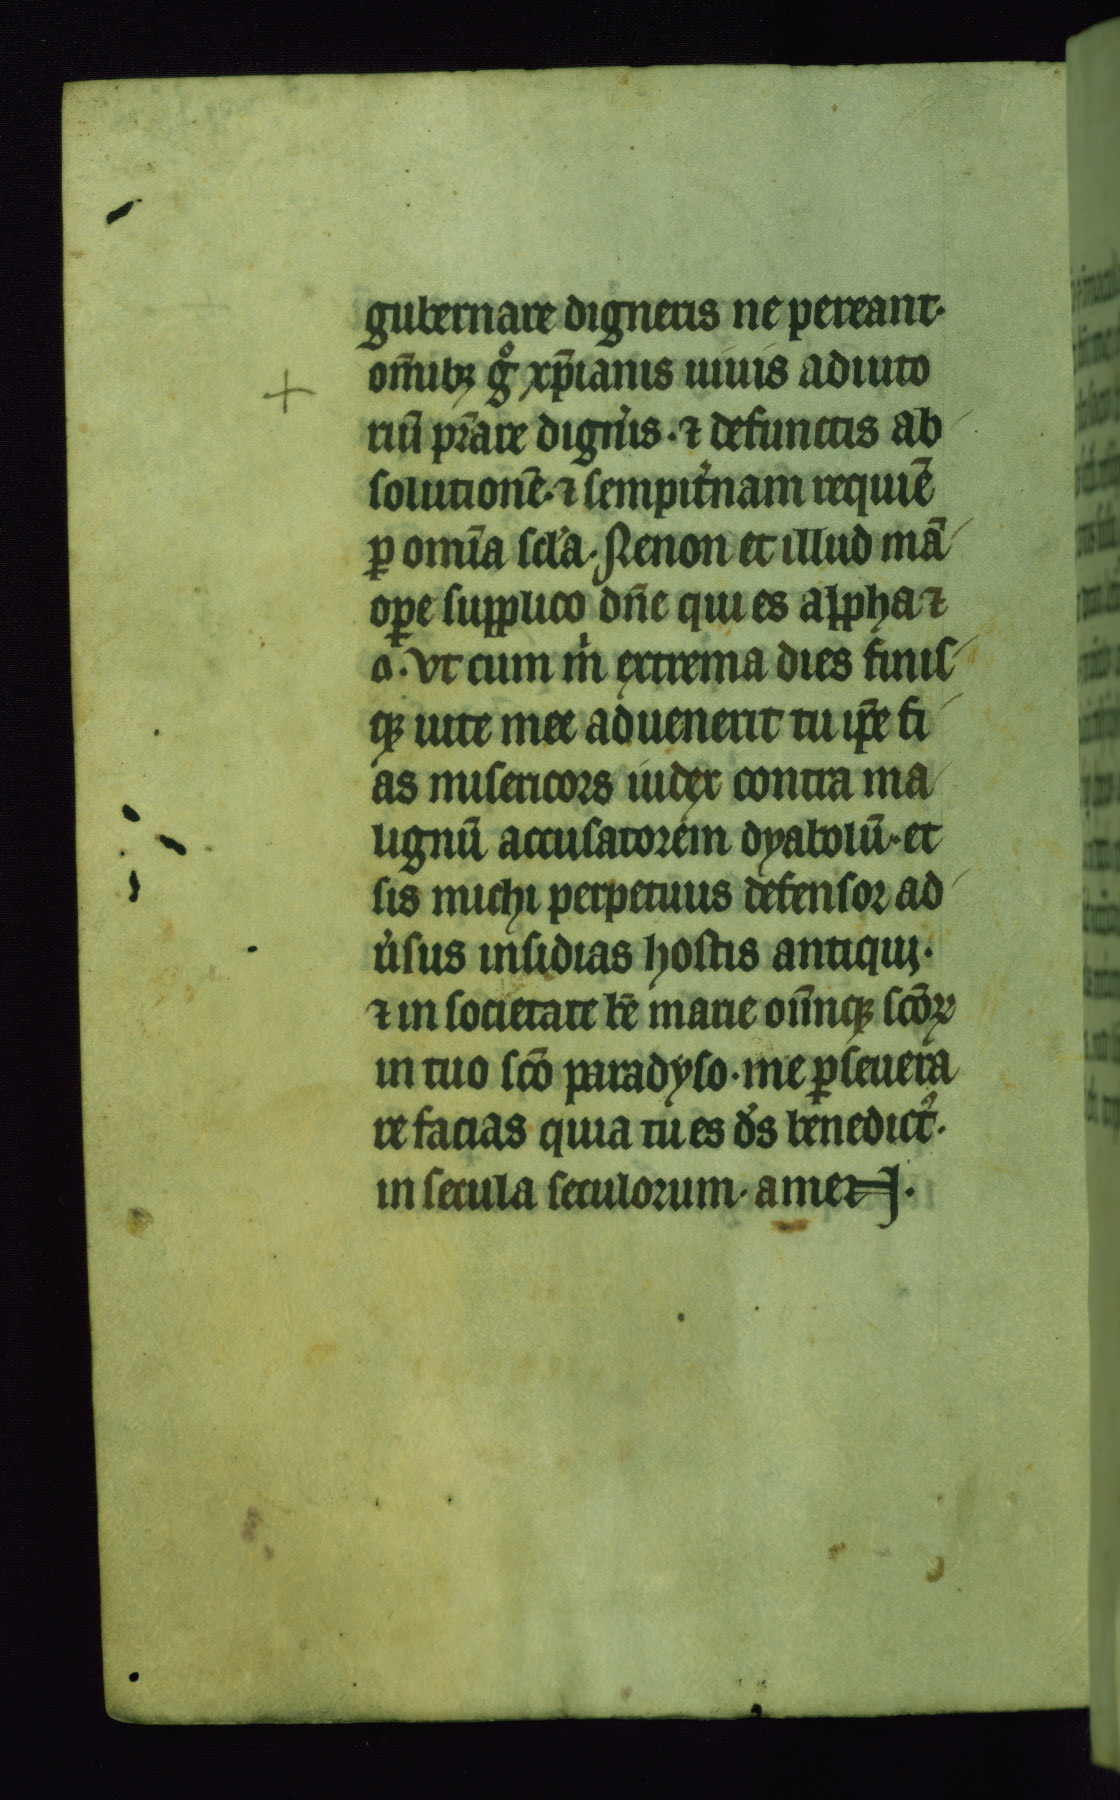 gubernare digneris ne pereant.
om̅ibꝫ gͦ xp̅ianis uiuis adiuto
riu̅ pr̅are digni̾s. ⁊ defunctis ab
solutione̅. ⁊ sempit̾nam requie̅
ꝑ omi̅a sc̾la. Nenon et illud ma̅
oꝑe supplico dn̅e qui es alpha ⁊
o. vt cum m̍ extrema dies finis
qꝫ uite mee aduenerit tu ip̅e fi
as misericors iudex contra ma
lignu̅ accusatorem dyabolu̅. et
sis michi perpetuus defensor ad
u̾sus insidias hostis antiqui.
⁊ in societate be̅ marie oi̅umqꝫ sc̅oꝝ
in tuo sc̅o paradyso. me ꝑseuera
re facias quia tu es d̾s benedictꝰ.
in secula seculorum. amen.